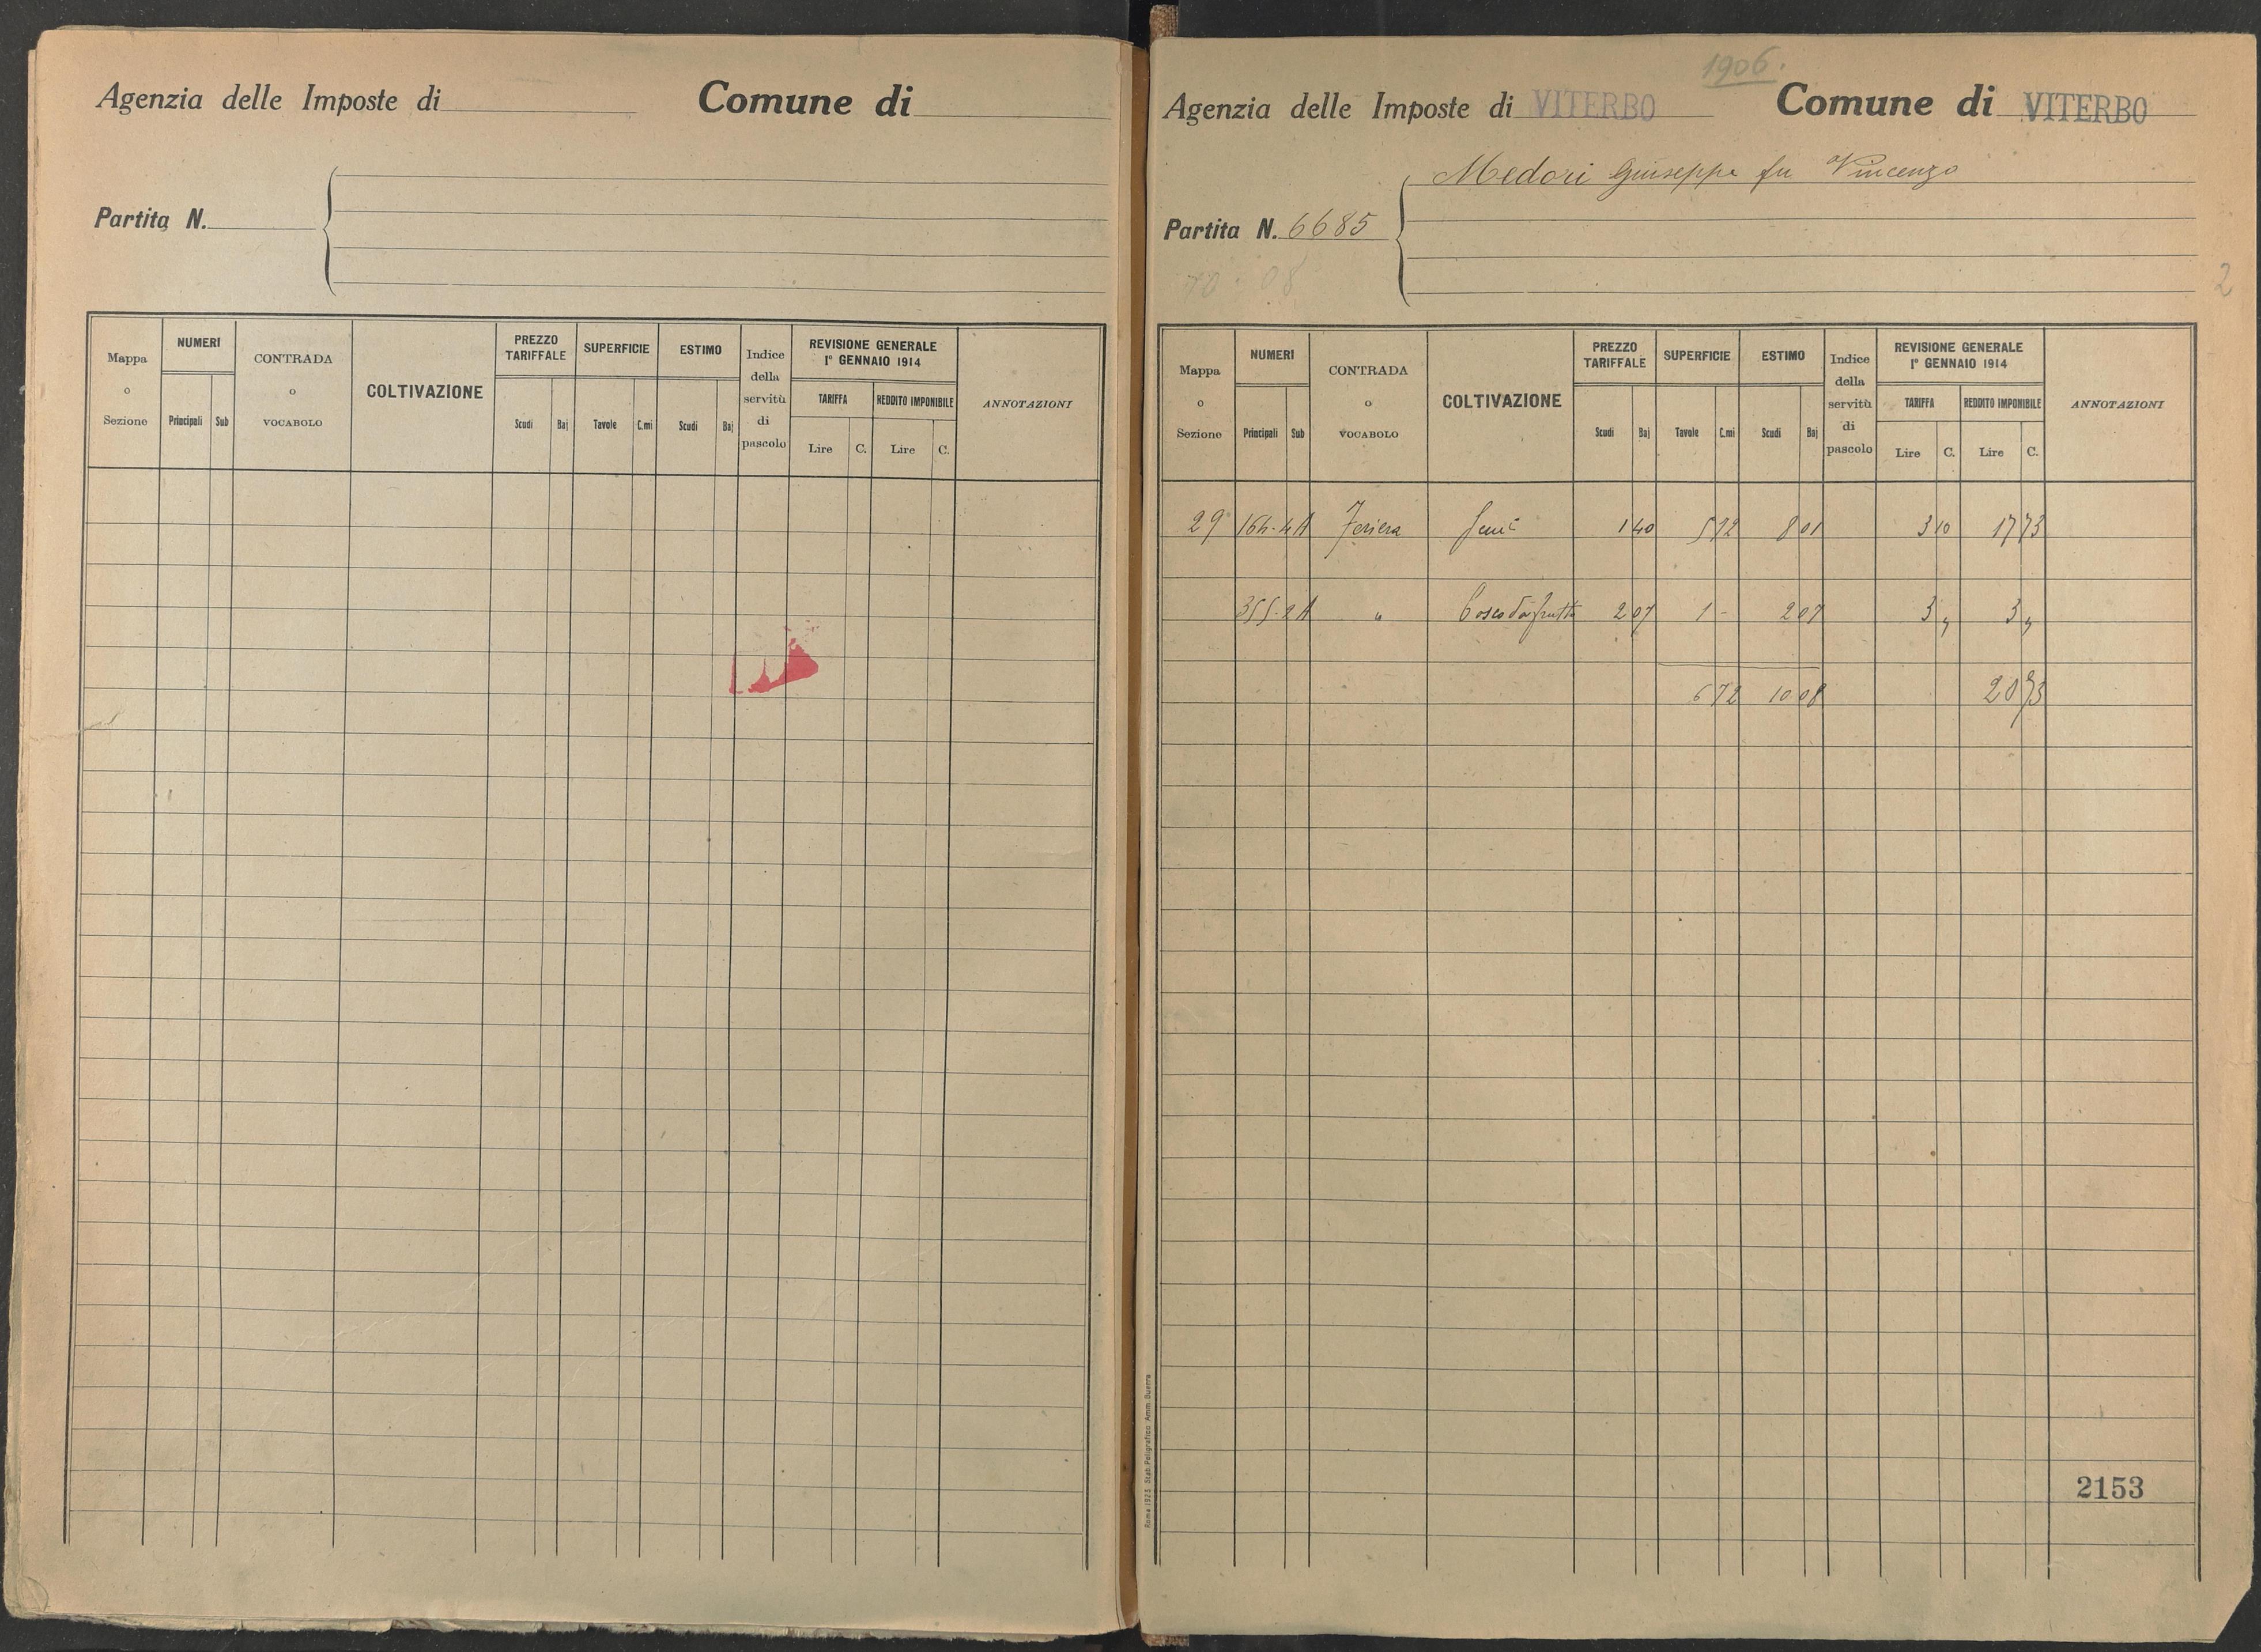 Agenzia delle Imposte di Comune di
Partita N.
Mappa o Sezione NUMERI Principali Sub CONTRADA o VOCABOLO COLTIVAZIONE PREZZO TARIFFALE Scudi Baj SUPERFICIE Tavole C.mi ESTIMO Scudi Baj Indice della servitù di pascolo REVISIONE GENERALE 1° GENNAIO 1914 TARIFFA Lire C. REDDITO IMPONIBILE Lire C. ANNOTAZIONI
1906.
Agenzia delle Imposte di VITERBO Comune di VITERBO
Medori Giuseppe fu Vincenzo
Partita N. 6685
10-08
2
Mappa o Sezione NUMERI Principali Sub CONTRADA o VOCABOLO COLTIVAZIONE PREZZO TARIFFALE Scudi Baj SUPERFICIE Tavole C.mi ESTIMO Scudi Baj Indice della servitù di pascolo REVISIONE GENERALE 1° GENNAIO 1914 TARIFFA Lire C. REDDITO IMPONIBILE Lire C. ANNOTAZIONI
29 164-4A 1 40 5 72 8 01 3 10 17 73
355-2A " 2 07 1 - 2 07 3 " 3 "
6 72 10 08 20 73
2153
Roma 1923 Stab. Poligrafico Amm. Guerra